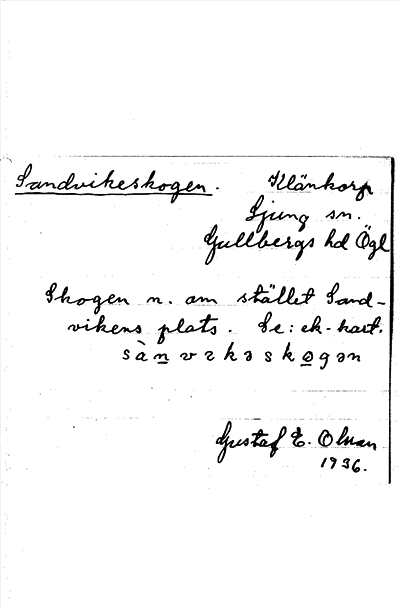 Sandvikeskogen. Klänkorp
Ljung sn.
Gullbergs hd Ögl
Skogen n. om stället Sand-
vikens plats. Se: ek-kart.
sànvɛkəskogən
Gustaf E. Olman
1936.